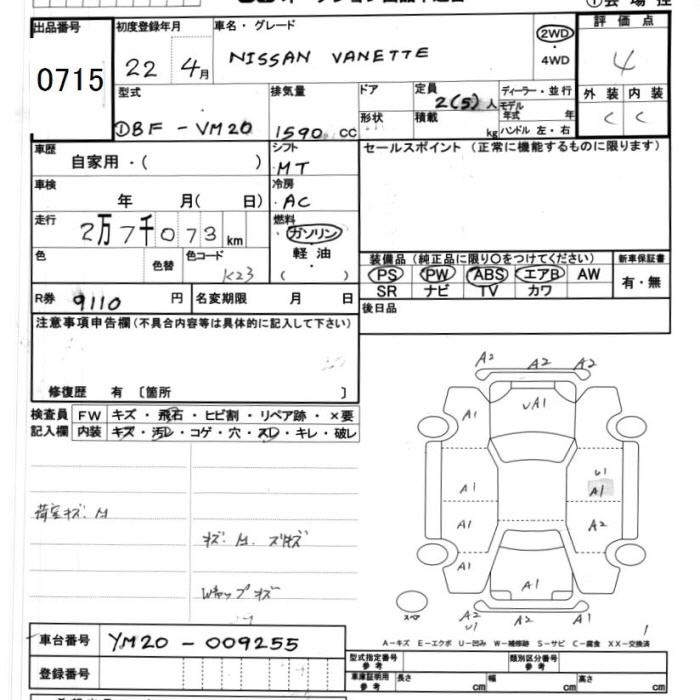 出品番号 初度登録年月 車名・グレード 評価点
0715 22 4月 NISSAN VANETTE 2WD ・ 4WD 4
型式 排気量 ドア 定員 ディーラー・並行 外装 内装
DBF - VM20 1590 CC 形状 2(5)人 積載 kg モデル年式 年 ハンドル 左・右 C C
車歴 自家用・( ) シフト MT セールスポイント (正常に機能するものに限ります)
車検 年 月( 日) 冷房 AC
走行 2万7千073 km 燃料 ガソリン
色 色替 色コード K23 軽油 ・ ( )
装備品 (純正品に限り〇をつけてください) 新車保証書
PS PW ABS エアB AW 有・無
SR ナビ TV カワ
R券 9110 円 名変期限 月 日 後日品
注意事項申告欄 (不具合内容等は具体的に記入して下さい)
修復歴 有 〔箇所 〕
検査員 FW キズ・飛石・ヒビ割・リペア跡・×要
記入欄 内装 キズ・汚レ・コゲ・穴・スレ・キレ・破レ
A2 A2 A2
A1 UA1
A1 U1 A1
A1 A2
A1 A1
スペア A2 U1 A2 A1
荷室キズ. M
キズ. M. スリキズ
Wキャップキズ
A-キズ E-エクボ U-凹み W-補修跡 S-サビ C-腐食 XX-交換済
車台番号 VM20 - 009255
登録番号
型式指定番号 参考 類別区分番号 参考
車庫証明用 参考 長さ cm 幅 cm 高さ cm